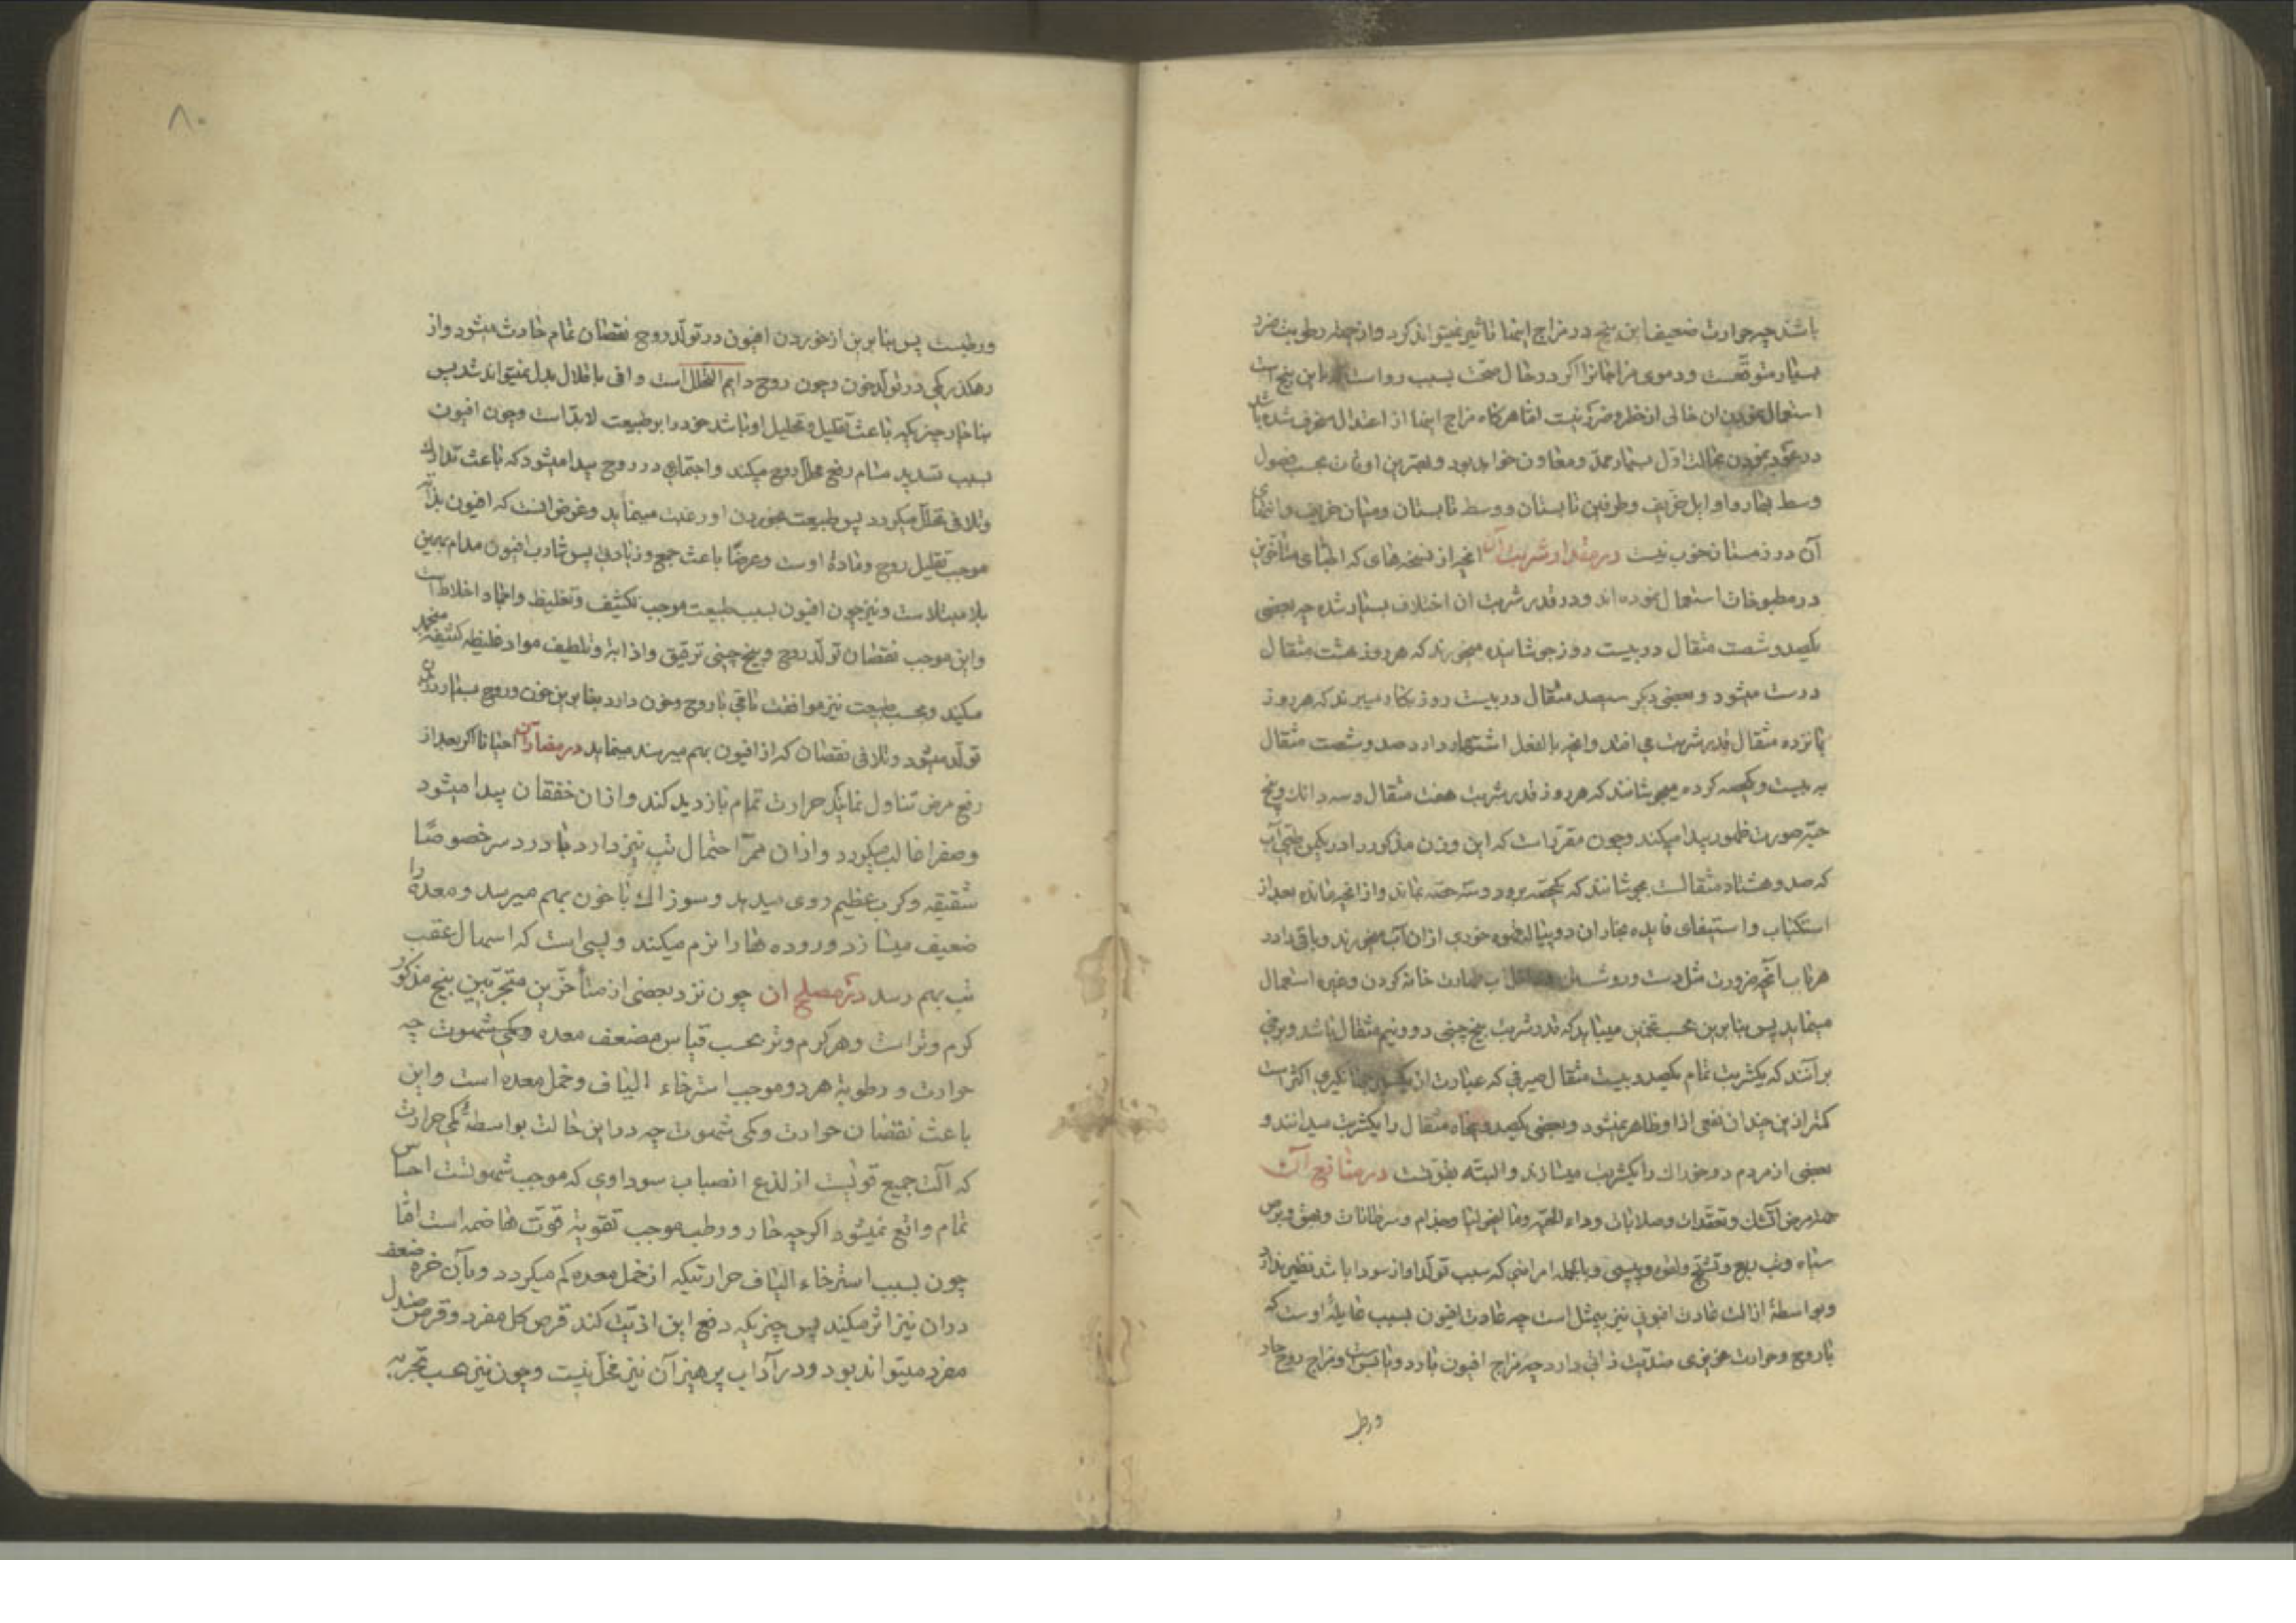 باشند چه حرارت ضعیف این بیخ در مزاج اینها تاثیر نمیتواند کرد و از جهة رطوبت ضرر
بسیار متوقعست و دموی مزاجانرا اگر در حال صحت بسبب این بیخ است
استعمال نمودن ان خالی از خطر و ضرر نیست اما هرگاه مزاج اینها از اعتدال منحرف شده باشد
در عود نمودن بحالت اول بسیار ممد و معاون خواهد بود و بهترین اوقات بحسب فصول
وسط بهار و اوایل خریف و طرفین تابستان و وسط تابستان و میان خریف و انتهای
آن در زمستان خوب نیست در مقدار شربت آن انچه از نسخه های که اطبای متأخرین
در مطبوخات استعمال نموده اند و در قدر شربت ان اختلاف بسیار شده چه بعضی
یکصد و شصت مثقال در بیست روز جوشانیده میخورند که هر روز هشت مثقال
درست میشود و بعضی دیگر سیصد مثقال در بیست روز بکار میبرند که هر روز
پانزده مثقال قدر شربت می افتد و انچه بالفعل اشتهار دارد صد و شصت مثقال
به بیست و یکحصه کرده میجوشانند که هر روز قدر شربت هفت مثقال و سه دانک و پنج
حبّه صورت ظهور پیدا میکند و چون مقرر است که این وزن مذکور را در یکمن طبّی آب
که صد و هشتاد مثقالست بجوشانند که یکحصه برود و سه حصه بماند و از انچه مانده بعد از
استکباب و استیفای فایده بخار ان دو پیاله قهوه خوری از ان آب میخورند و باقی را در
هر باب آنچه ضرورت مثل دست و رو شستن طهارت خانه کردن و غیره استعمال
مینماید پس بنابرین بحسب تخمین میباید که قدر شربت بیخ چینی دو و نیم مثقال باشد و برخی
بر آنند که یکشربت تمام یکصد و بیست مثقال صیرفی که عبارت از اکثر است
کمتر ازین چندان نفعی ازو ظاهر نمیشود و بعضی یکصد و پنجاه مثقال را یکشربت میدانند و
بعضی از مردم دو خوراک را یکشربت میسازند و البته بقوتست در منافع آن
جهة مرض آتشک و تعقدات و صلابات و داء الحیّه و مالیخولیا و جذام و سرطانات و بهق و برص
سیاه و تب ربع و تشنج و پیسی و بالجمله امراضی که سبب تولد او از سودا باشد نظیر ندارد
و بواسطهٔ ازالت عادت افیونی نیز بیمثل است چه عادت افیون بسبب غایلهٔ اوست که
با روح و حرارت غریزی ضدیّت ذاتی دارد چه مزاج افیون بارد و یابس است و مزاج روح حار
و رطب
۸۰
و رطبست پس بنابرین از خوردن افیون در تولد روح نقصان تمام حادث میشود و از
رهکذر کمی در تولد خون و چون روح دایم التحلل است و افی باخلال بدل نمیتواند شد پس
بناچار چیزیکه باعث تقلیل و تحلیل او باشد خود را بر طبیعت لابد است و چون افیون
بسبب تسدید مسام رفع تحلل روح میکند و اجتماعی در روح پیدا میشود که باعث تدارک
و تلافی تحلل میکردد پس طبیعت بخوردن او رغبت مینماید و غرض انست که افیون بذاته
موجب تقلیل روح و مادهٔ اوست و عرضًا باعث جمع و زیادتی پس شارب افیون مدام بهمین
بلا مبتلاست و نیز چون افیون بسبب طبیعت موجب تکثیف و تغلیظ و انجماد اخلاط است
و این موجب نقصان تولد روح و بیخ چینی ترقیق و اذابه و تلطیف مواد غلیظه کثیفه منجمد
میکند و بحسب طبیعت نیز موافقت تامّی با روح و خون دارد بنابرین خون و روح بسیار در بدن
تولد میشود و تلافی نقصان که از افیون بهم میرسد مینماید در مضار آن احیانا اگر بعد از
رفع مرض تناول نمایند حرارت تمام بازدید کند و از ان خفقان پیدا میشود
و صفرا غالب میکردد و از ان ممرّ احتمال تب نیز دارد با درد سر خصوصًا
شقیقه و کرب عظیم روی میدهد و سوزاک با خون بهم میرسد و معده را
ضعیف میسازد و روده ها را نرم میکند و بسی است که اسهال عقب
تب بهم رسد در مصلح ان چون نزد بعضی از متأخرین متجرّبین بیخ مذکور
کرم و تر است و هر کرم و تر بحسب قیاس مضعف معده و کمی شهوت چه
حرارت و رطوبة هر دو موجب استرخاء الیاف و خمل معده است و این
باعث نقصان حرارت و کمی شهوت چه در این حالت بواسطهٔ کمی حرارت
که آلت جمیع قویست از لذع انصباب سوداوی که موجب شهوتست احساس
تمام واقع نمیشود اکرچه حار و رطب موجب تقویة قوّت هاضمه است امّا
چون بسبب استرخاء الیاف حرارتیکه از خمل معده کم میکردد و بآن خره ضعف
در ان نیز اثر میکند پس چیزیکه دفع این اذیّت کند قرص کل مفرد و قرص صندل
مفرد میتواند بود و در آداب پرهیز آن نیز مخلّ نیست و چون نیز بحسب تجربه